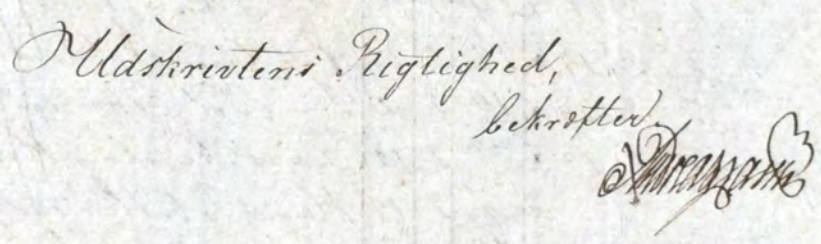 Udskrivtens Rigtighed,
bekræfter